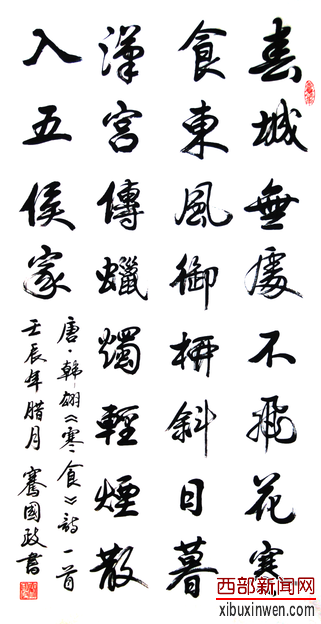 春城無處不飛花寒
食東風御柳斜日暮
漢宮傳蠟燭輕煙散
入五侯家
唐·韓翃《寒食》詩一首
壬辰年腊月騫國政書
西部新闻网
xibuxinwen.com